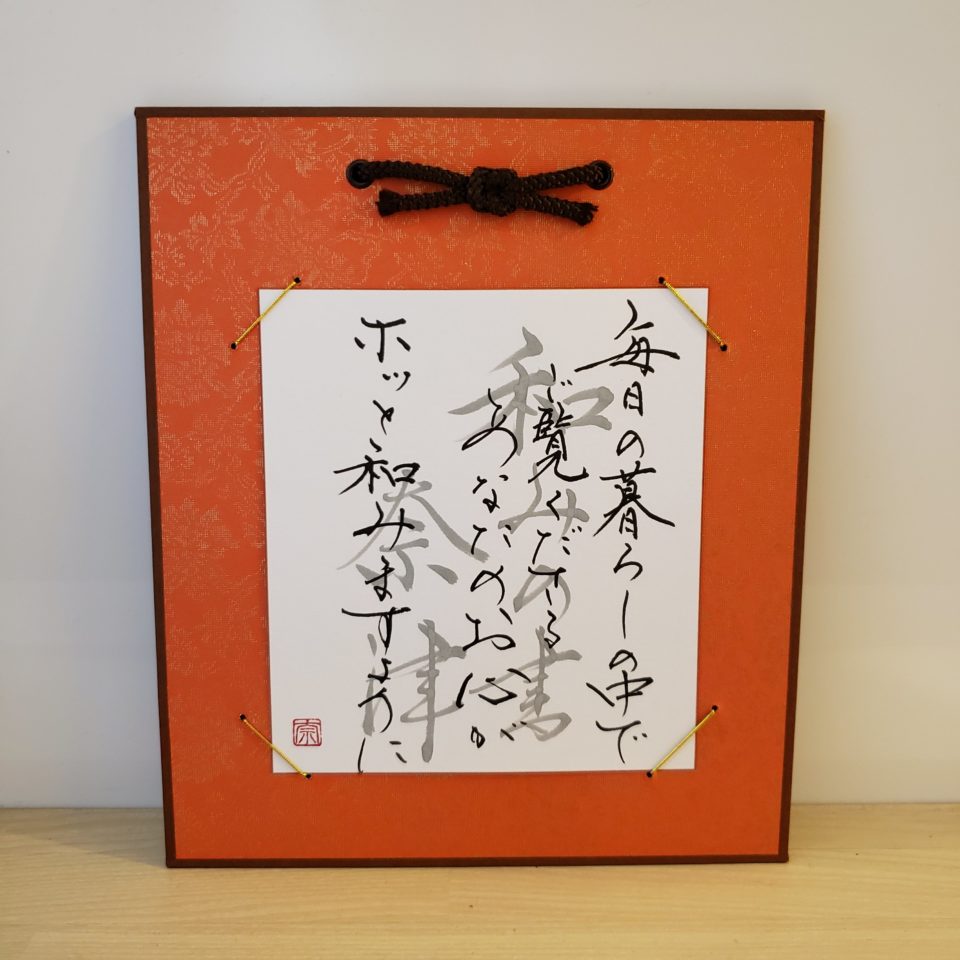 毎日の暮らしの中で
ご覧くださる
あなたの、お心が
ホッと和みますように
和みの書
奏津